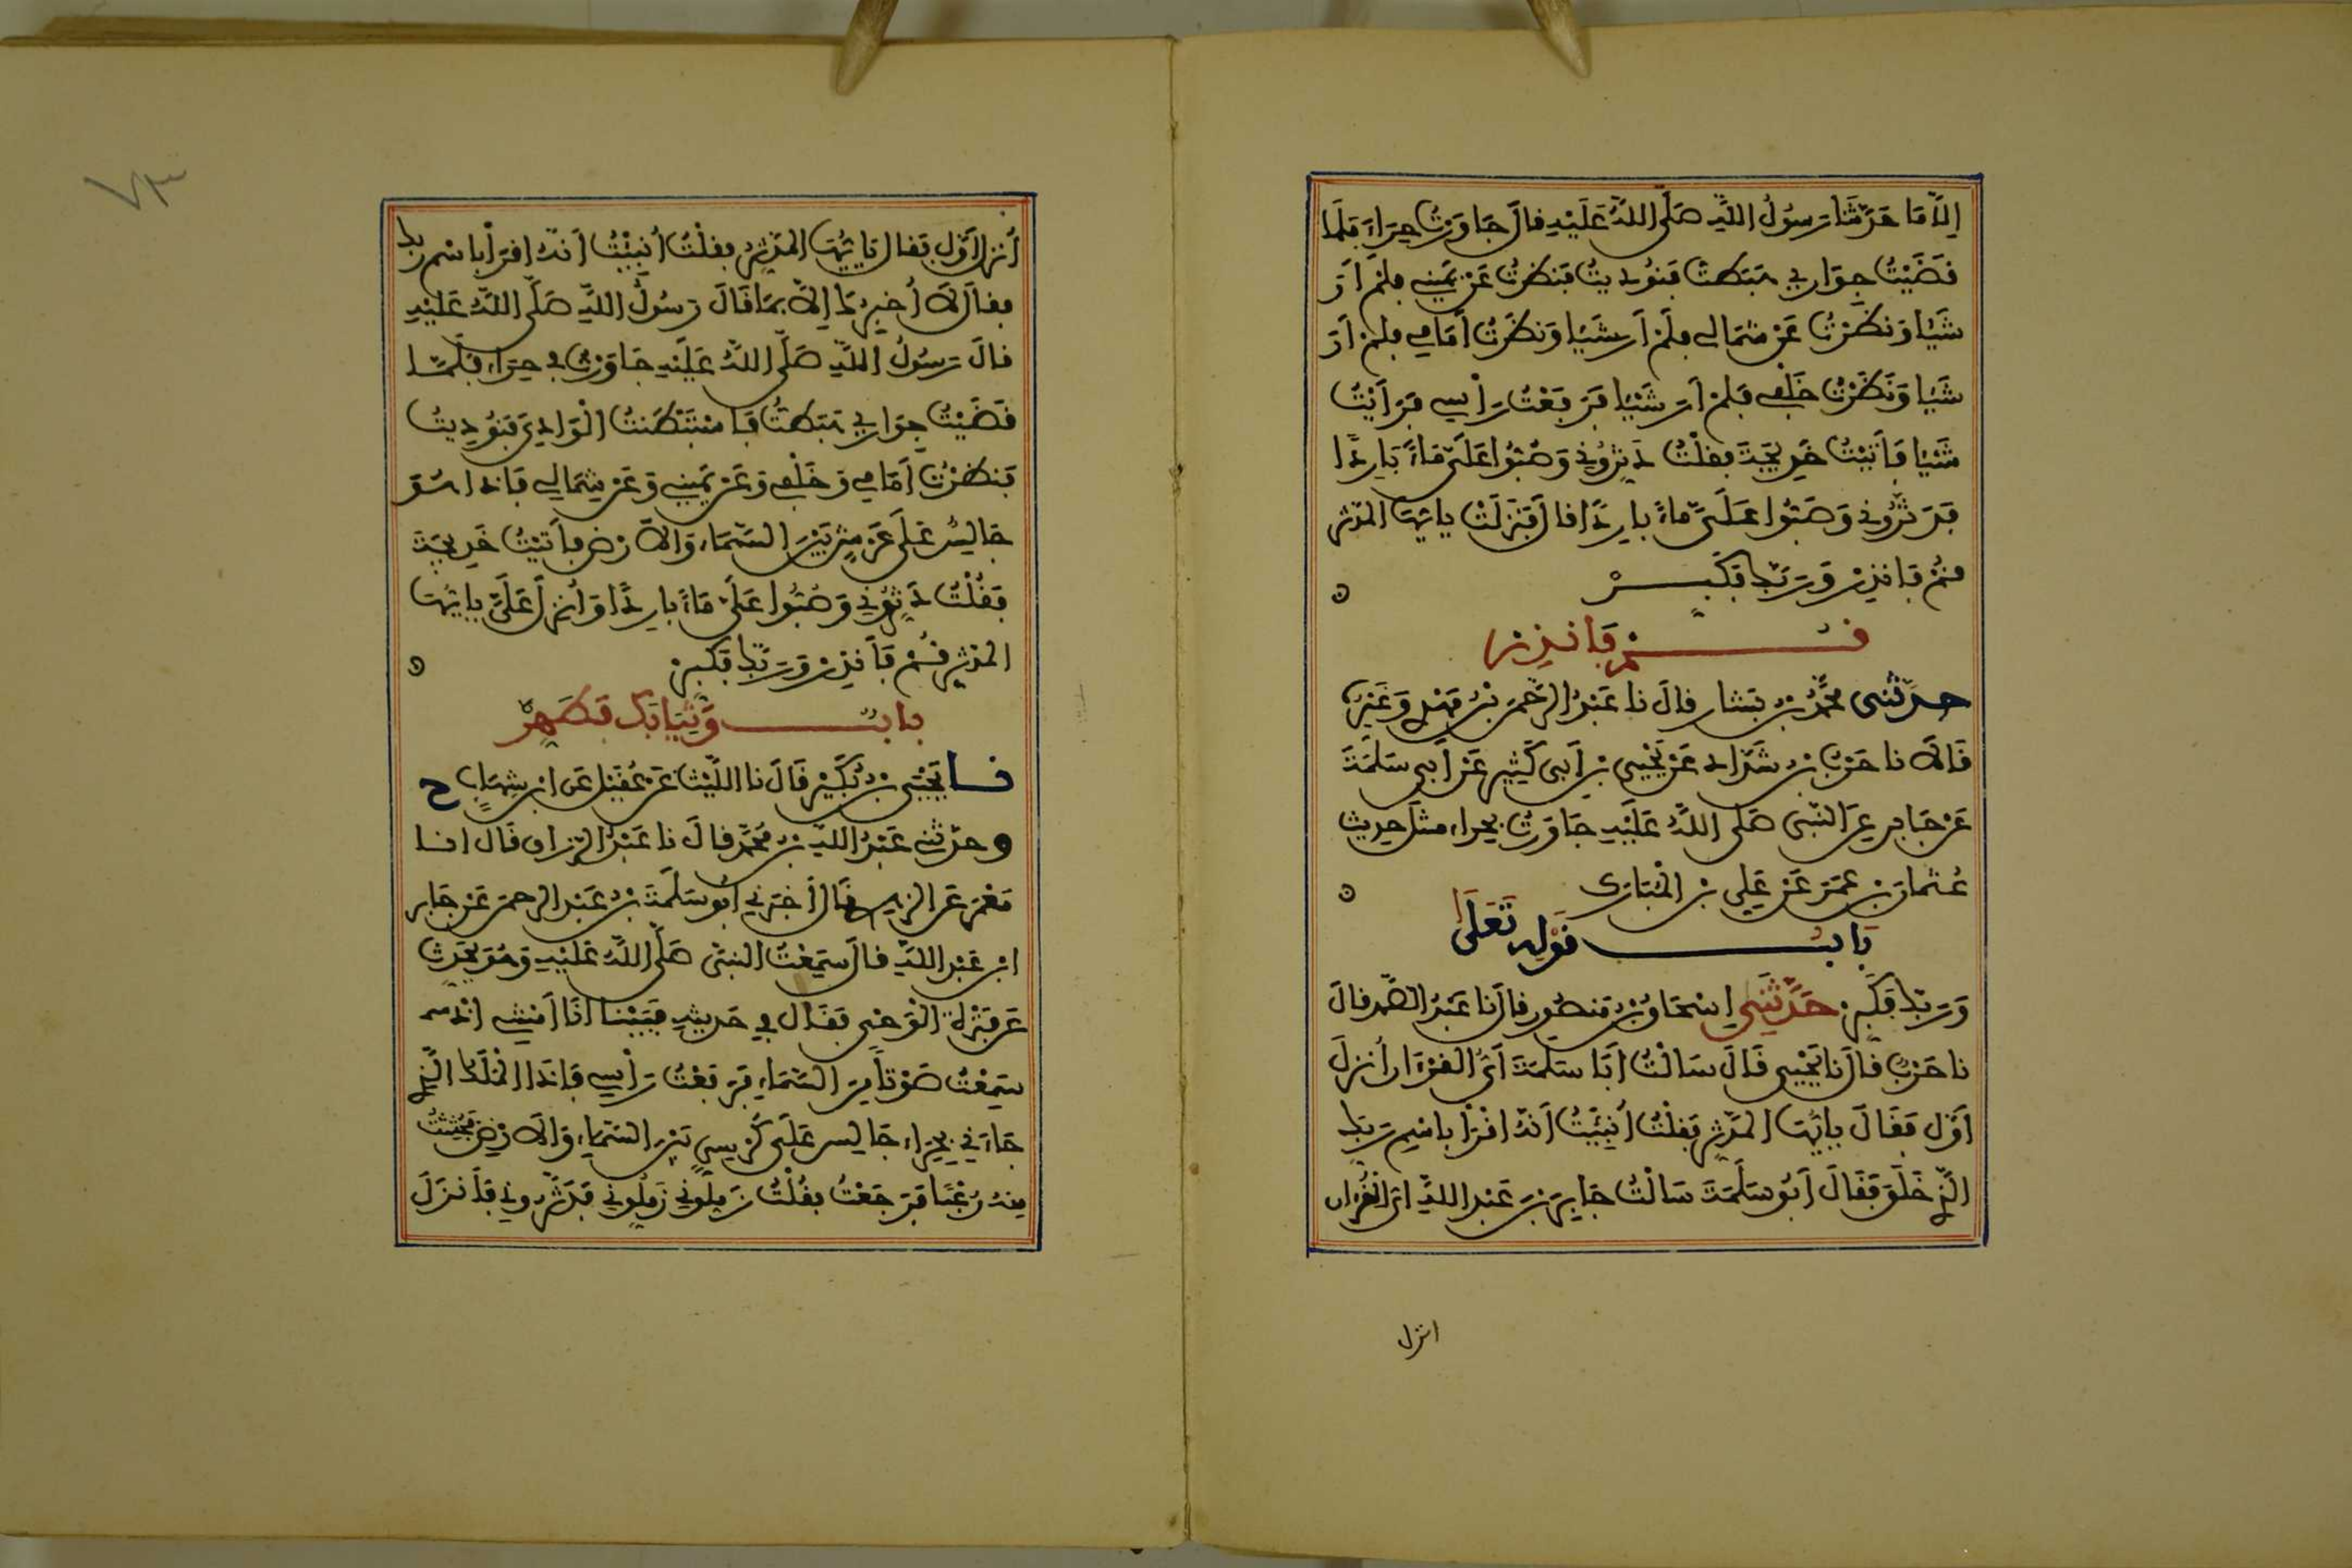 إلّا مَا حَدَّثَنَا رَسُولُ اللَّهِ صَلَّى اللَّهُ عَلَيْهِ قالَ جَاوَرْتُ حِرَاءَ فَلَمَّا
قَضَيْتُ جِوَارِي هَبَطتُ فَنُودِيتُ فَنَظَرْتُ عَنْ يَمِينِي فلمْ أَرَ
شَيْا وَنَظَرْتُ عَنْ شِمَالِي فلَمْ أَرَ شَيْا وَنَظَرْتُ أَمَامِي فلمْ أَرَ
شَيْا وَنَظَرْتُ خَلْفِي فَلمْ أرَ شَيْا فَرَفَعْتُ رَأْسِي فَرَأَيْتُ
شَيْا فَأَتَيْتُ خَدِيجَةَ فقلْتُ دَثِّرُونِي وَصُبُّوا عَلَيَّ مَاءً بَارِدًا
فَدَثَّرُونِي وَصَبُّوا عَلَيَّ ماءً بارِدًا قالَ فَنَزَلَتْ يايُّهَا المدّثر
قُمْ فَانذِرْ وَرَبَّكَ فَكَبِّرْ
قُمْ فَانذِرْ
حدّثني محمَّدُ بْنُ بَشار قالَ نا عَبْدُ الرَّحْمَنِ بْنُ مَهْدِي وَغَيْرُهُ
قَالَا نا حَرْبُ بْنُ شَدَّادٍ عَنْ يَحْيَى بْنِ أَبِي كَثِيرٍ عَنْ أَبِي سَلَمَةَ
عَنْ جَابِرٍ عَنِ النَّبِيِّ صَلَّى اللَّهُ عَلَيْهِ جَاوَرْتُ بحراء مثلَ حديث
عُثمَانَ بْنِ عُمَرَ عَنْ عَلِي بْنِ المُبَارَك
بَابُ قَوْلِهِ تَعَلَى
وَرَبَّكَ فَكَبِّرْ حَدَّثَنِي إِسْحَاقُ بْنُ مَنصُورٍ قالَ نا عَبْدُ الصَّمَدِ قالَ
نا حَرْبٌ قالَ نا يَحْيَى قَالَ سَالْتُ أبَا سَلَمَةَ أَيُّ القرْءَانِ أُنزِلَ
أَوَّل فَقَالَ يايُّهَا المدَّثِّر فَقلْتُ أُنبِيتُ أَنَّهُ اقْرَأْ بِاسْمِ رَبِّكَ
الَّذِي خَلَقَ فَقَالَ أَبُو سَلَمَةَ سَالْتُ جَابِرَ بْنَ عَبْدِ اللَّهِ أيّ القُرْءان
انزل
٧٣
أُنزِلَ أَوَّل فقال يايُّهَا المدَّثِّر فقلْتُ أُنبِيْتُ أَنَّهُ اقرَأْ باسْم ربك
فقالَ لَا أُخبِرُكَ إِلَّا بِمَا قَالَ رَسُولُ اللَّهِ صَلَّى اللَّهُ عَلَيْهِ
قالَ رَسُولُ اللَّهِ صَلَّى اللَّهُ عَلَيْهِ جَاوَرْتُ في حِرَاءٍ فَلَمَّا
قَضَيْتُ جِوَارِي هَبَطتُ فَاسْتَبْطَنتُ الْوَادِيَ فَنُودِيتُ
فَنظَرْتُ أَمَامِي وَخَلْفِي وَعَنْ يَمِينِي وَعَنْ شِمَالِي فَإذا هُوَ
جَالِسٌ عَلَى عَرْشٍ بَيْنَ السَّمَاءِ وَالَارْضِ فأَتَيْتُ خَدِيجَةَ
فَقُلْتُ دَثِّرُونِي وَصُبُّوا عَلَيَّ مَاءً بارِدًا وَأُنزِلَ عَلَيَّ يايُّهَا
المدّثّر قُمْ فَأَنذِرْ وَرَبَّكَ فَكَبِّرْ
بابٌ وَثِيَابَكَ فَطَهِّرْ
نا يَحْيَى بْنُ بُكَيْرٍ قَالَ نا اللَّيْثُ عَنْ عُقَيْلٍ عَنِ ابْنِ شِهَابٍ ح
وحدّثني عَبْدُ اللَّهِ بْنُ مُحَمَّدٍ قالَ نا عَبْدُ الرَّزاق قَالَ انا
مَعْمَرٌ عَنِ الزهري قَالَ أَخبَرَنِي أَبو سَلَمَةَ بْنُ عَبْدِ الرحمن عَنْ جَابر
ابْن عَبْدِ اللَّهِ قالَ سَمِعْتُ النبيَّ صَلَّى اللَّهُ عَلَيْهِ وَهُوَ يُحَدِّث
عَنْ فَتْرَةِ الْوَحْيِ فَقَالَ في حَدِيثِهِ فَبَيْنَا أَنَا أَمْشِي إِذْ
سَمِعْتُ صَوْتاً مِنَ السَّمَاءِ فَرَفَعْتُ رَأْسِي فَإِذَا المَلَكُ الَّذِي
جَاءَنِي بِحِرَاءٍ جَالِسٌ عَلَى كُرْسِيٍّ بَيْنَ السَّمَاءِ وَالَارْضِ فَجُثِثْتُ
مِنْهُ رُعْبًا فَرَجَعْتُ فقُلْتُ زَمِّلُونِي زَمِّلُونِي فَدَثَّرُونِي فَأَنزَلَ